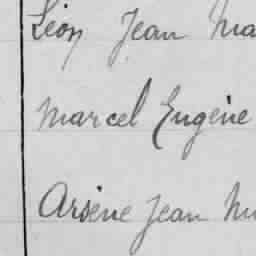 Léon Jean Ma
Marcel Eugène
Arsène Jean